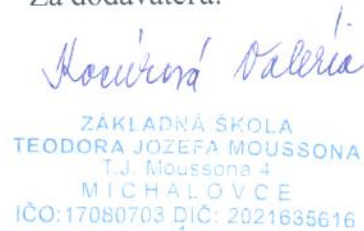 Za dodávateľa:
Kocúrová Valéria
ZÁKLADNÁ ŠKOLA
TEODORA JOZEFA MOUSSONA
T.J. Moussona 4
MICHALOVCE
IČO:17080703 DIČ: 2021635616